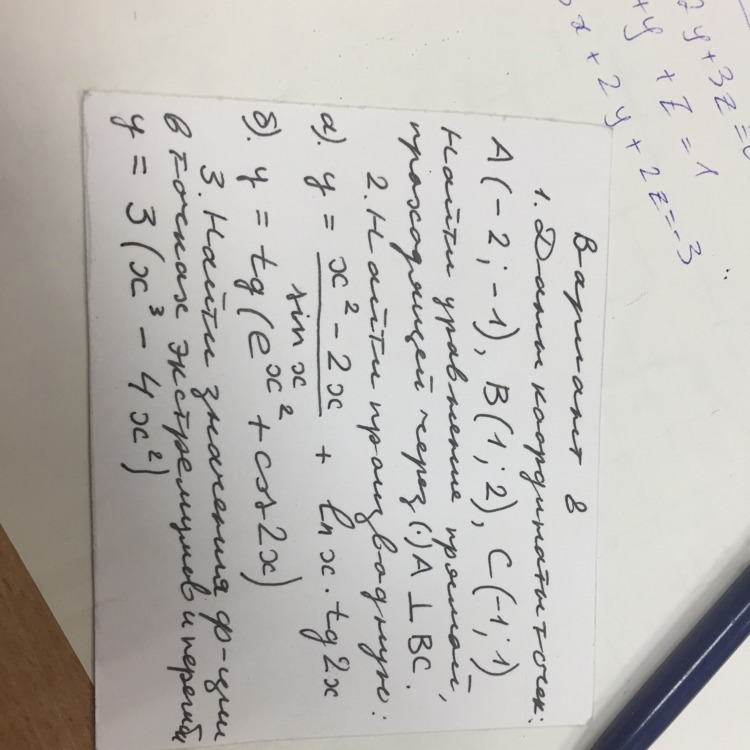 Вариант 8
1. Даны координаты точек:
A(-2; -1), B(1; 2), C(-1; 1)
Найти уравнение прямой,
проходящей через (·) A ⊥ BC.
2. Найти производную:
а). y = (x² - 2x)/(sin x) + ln x · tg 2x
б). y = tg(e^(x²) + cos 2x)
3. Найти значения ф-ции
в точках экстремумов и перегиб
y = 3(x³ - 4x²)
2y + 3z =
+y + z = 1
x + 2y + 2z = -3